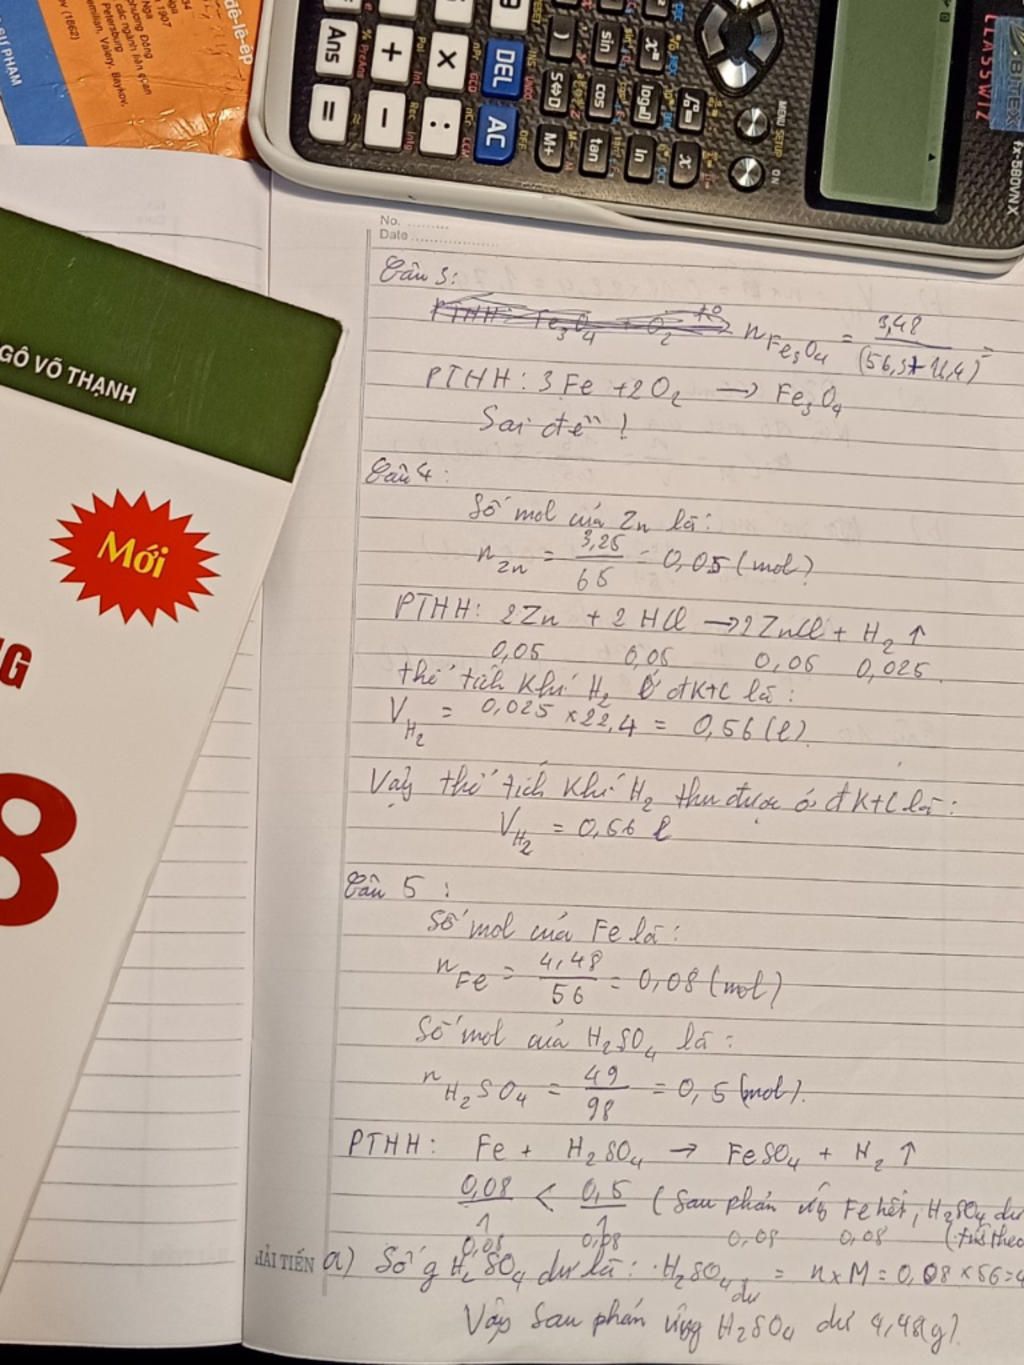 đê-lê-ép
1907
Petersburg
(1862)
SƯ PHẠM
Ans
+
×
DEL
=
−
:
AC
)
sin
S⇔D
cos
M+
tan
ln
x
MENU SETUP
ON
CLASSWIZ
fx-580VN X
No.
Date
GÔ VÕ THẠNH
Mới
G
8
Câu 3:
PTHH: Fe₃O₄ + O₂ n Fe₃O₄ = 3,48
PTHH: 3Fe + 2O₂ → Fe₃O₄
Sai đề !
Câu 4:
Số mol của Zn là:
n Zn = 3,25/65 = 0,05 (mol)
PTHH: 2Zn + 2HCl → 2ZnCl + H₂ ↑
0,05 0,05 0,05 0,025
thể tích khí H₂ ở đktc là:
V H₂ = 0,025 × 22,4 = 0,56 (l).
Vậy thể tích khí H₂ thu được ở đktc là:
V H₂ = 0,56 l
Câu 5 :
Số mol của Fe là:
n Fe = 4,48/56 = 0,08 (mol)
Số mol của H₂SO₄ là:
n H₂SO₄ = 49/98 = 0,5 (mol).
PTHH: Fe + H₂SO₄ → FeSO₄ + H₂ ↑
0,08 < 0,5 (Sau phản ứ Fe hết, H₂SO₄ dư
0,08 0,08 0,08 0,08 (tính theo
HẢI TIẾN a) Số g H₂SO₄ dư là: H₂SO₄ dư = n×M = 0,08×56=4
Vậy sau phản ứng H₂SO₄ dư 4,48(g).